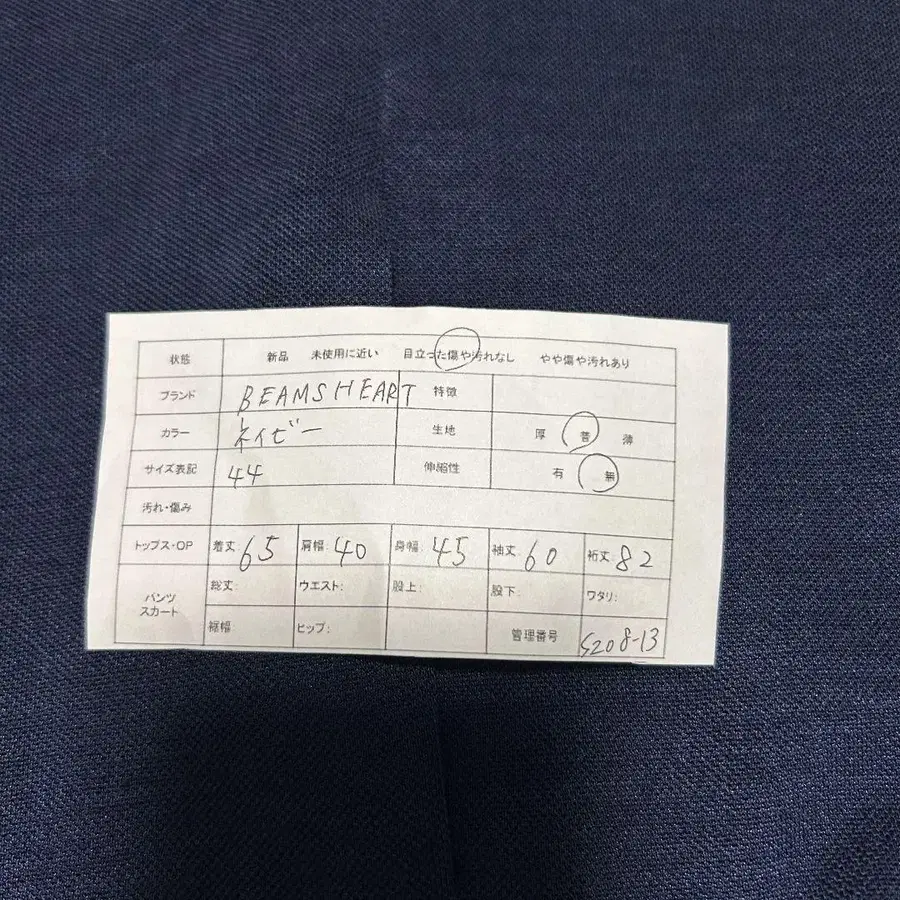 状態 新品 未使用に近い 目立った傷や汚れなし やや傷や汚れあり
ブランド BEAMS HEART 特徴
カラー ネイビー 生地 厚 普 薄
サイズ表記 44 伸縮性 有 無
汚れ・傷み
トップス・OP 着丈: 65 肩幅: 40 身幅: 45 袖丈: 60 裄丈: 82
パンツ スカート 総丈: ウエスト: 股上: 股下: ワタリ:
裾幅 ヒップ: 管理番号 S208-13